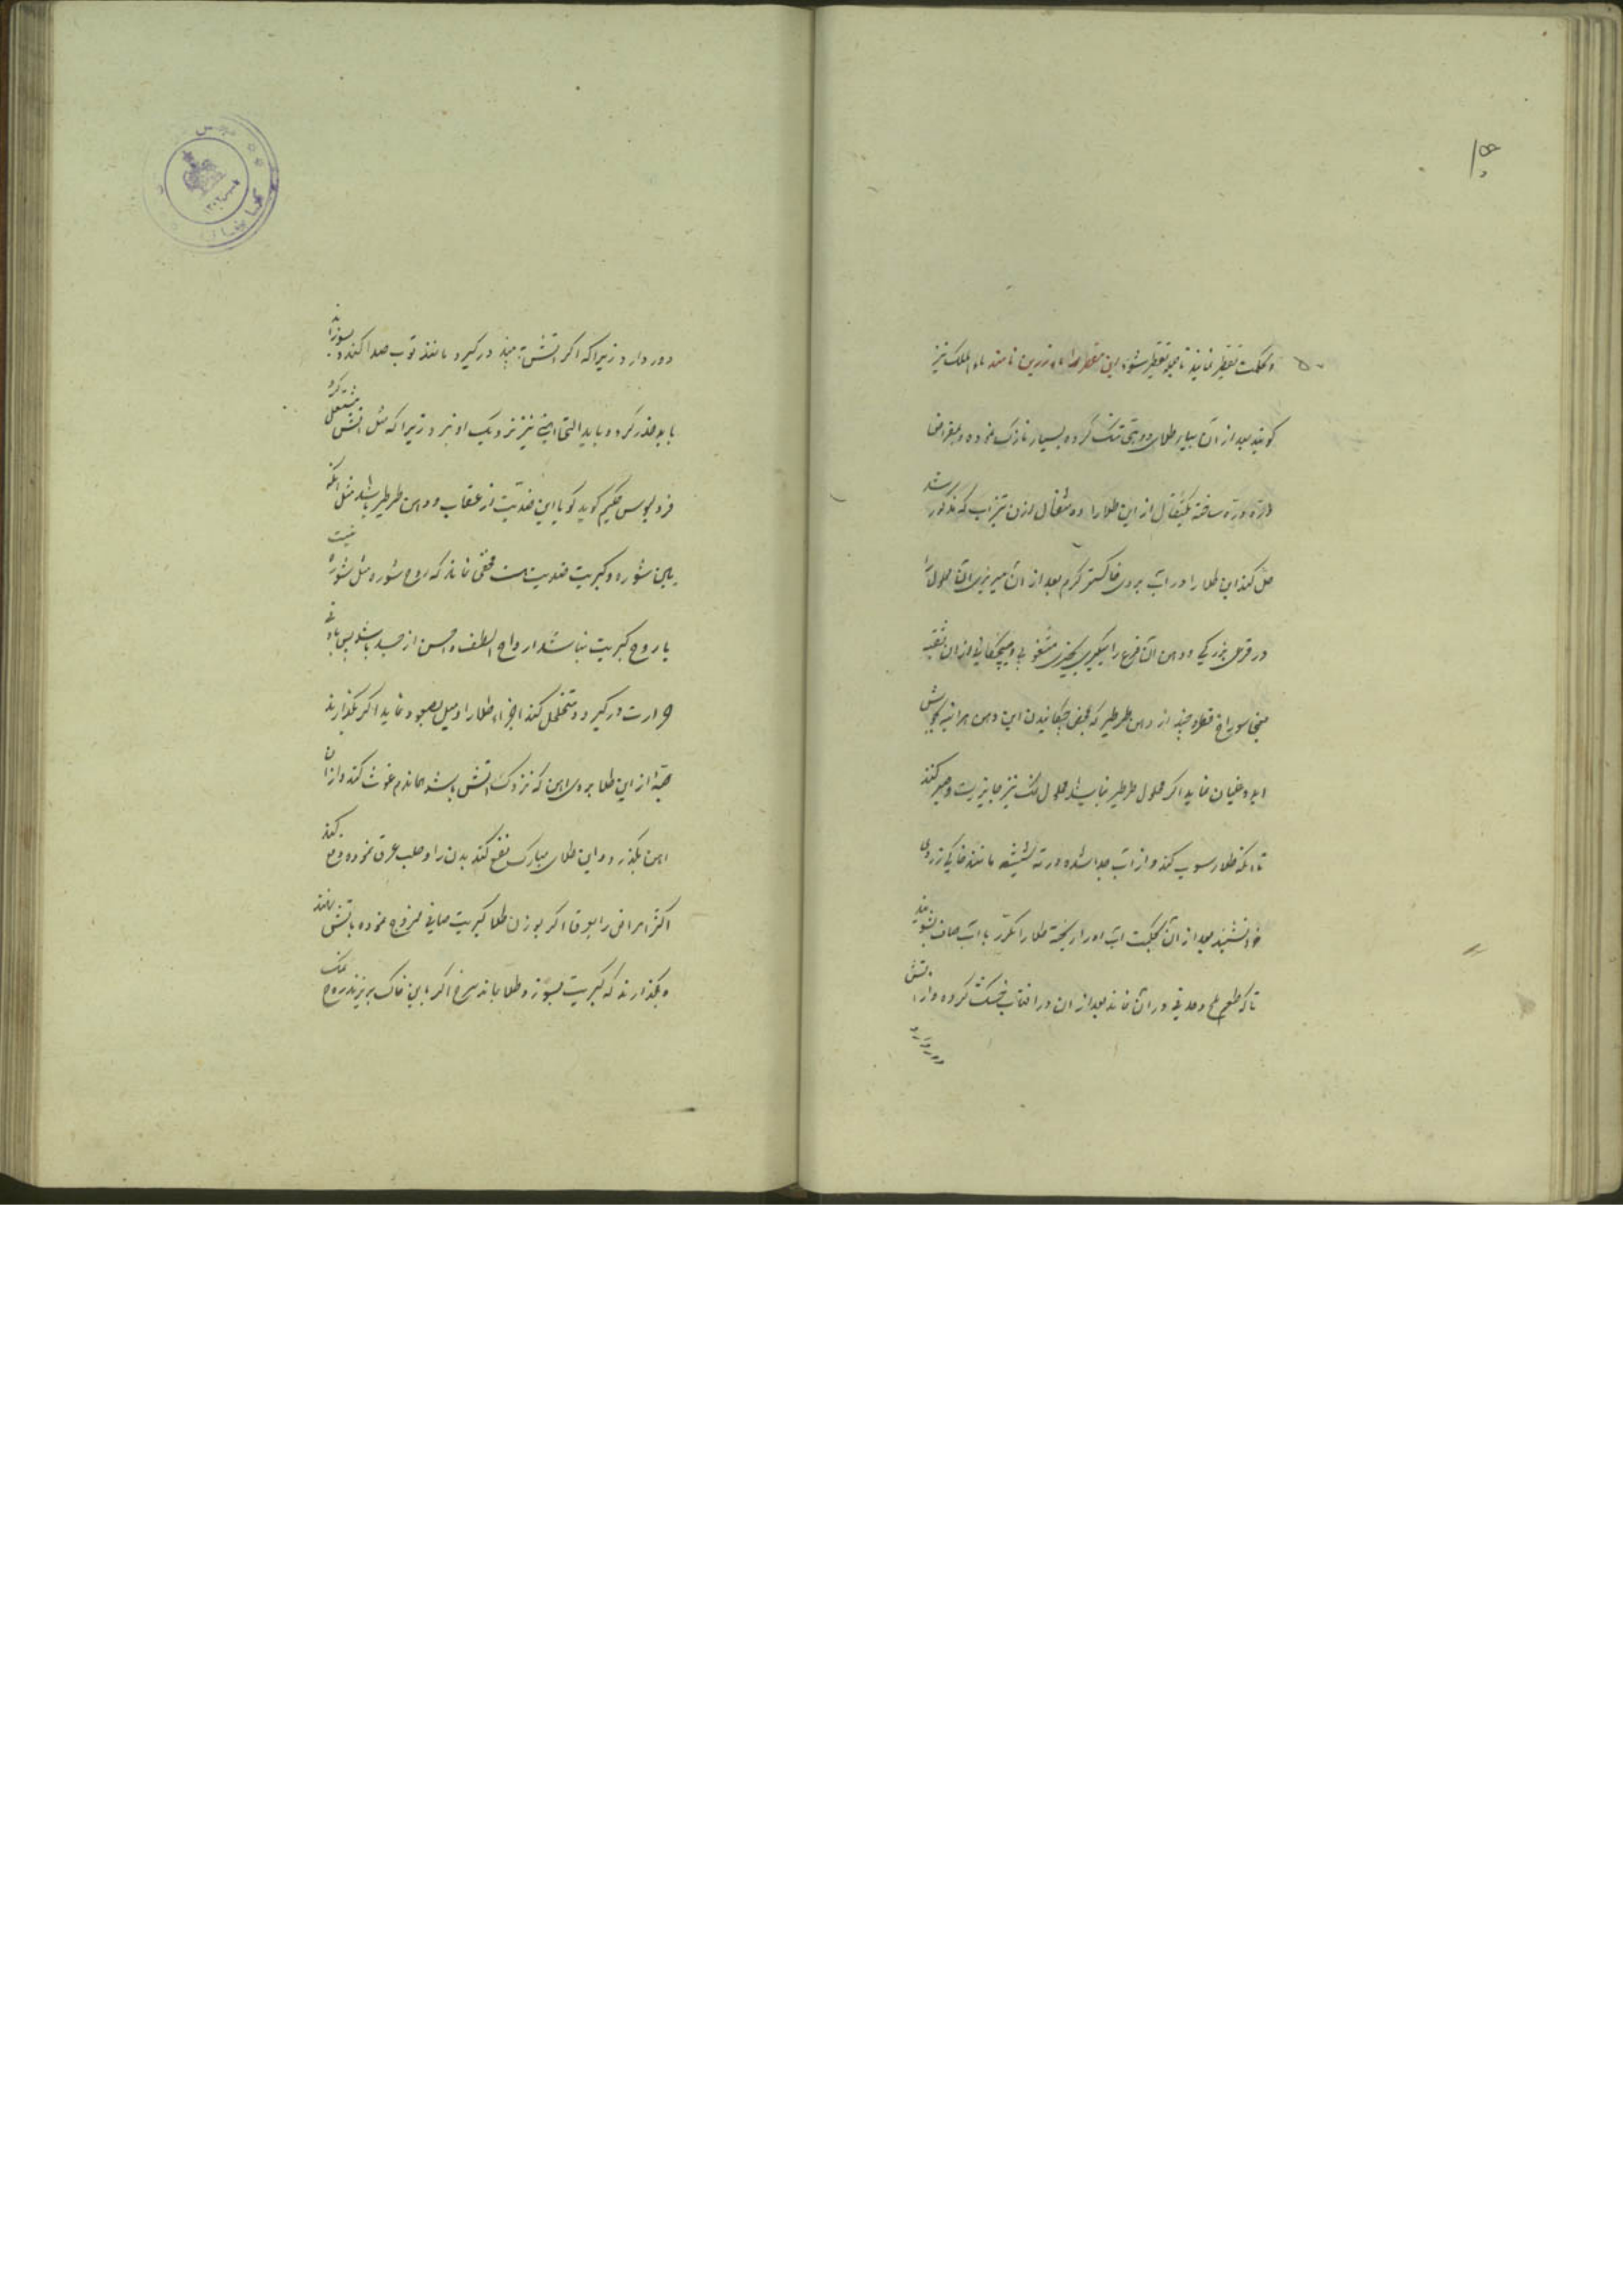 و بحکمت تقطیر نمایند تا جمله تقطیر شود این مقطر را ماء زرین نامند ماء الملک نیز
گویند بعد از آن بیاور طلای دوبتی تنک کرده بسیار نازک نموده و بمقراض
ذره ذره ساخته یکمثقال از این طلا را ده مثقال وزن تیزاب که مذکور شد
حل کند این طلا را در آب بروی خاکستر گرم بعد از آن میریزی آن محلول را
در قرعی بزرگی و دهن آن قرع را میگیری بچیزی مثقوبی و میچکانی از آن ثقبه
یعنی سوراخ قطره چند از دهن طرطیر که بمحض چکانیدن این دهن هر آینه بجوشش
آید و غلیان نماید اگر محلول طرطیر نباشد محلول نمک نیز جایز است و صبر کنند
تا آنکه طلا رسوب کند و از آب جدا شده در ته شیشه مانند خاکی زردی
فرو نشیند بعد از آن بحکمت آب او را ریخته طلا را مکرر با آب صاف بشویند
تا که طعم ملح و حدتی در آن نماند بعد از آن در آفتاب خشک کرده و از آتش
دور دارد زیرا که اگر آتش بیند درگیرد مانند توپ صدا کند و بسوزاند
باید حذر کرد و نباید التجا آتش نیز نزدیک او برد زیرا که مثل آتش مشتعل گردد
فردلیوس حکیم گوید گویا این ضدیت از عقاب و دهن طرطیر باشد مثل آنکه
بین شوره و کبریت ضدیت است مخفی نماند که روح شوره مثل شوره نیست
یا روح کبریت نباشد ارواح الطف و احسن از جسد باشد پس باندک
حرارت درگیرد و متخلخل کند اجزاء طلا را و میل بصعود نماید اگر بگذارند
حبهٔ از این طلا بروی آهن که نزدیک آتش باشد هماندم غوث کند و از آن
آهن بگذرد و این طلای مبارک نفع کند بدن را و جلب عرق نموده و دفع کند
اکثر امراض را بعرق اگر بوزن طلا کبریت صافی ممزوج نموده بآتش نهند
و بگذارند که کبریت بسوزد و طلا بماند سرخ اگر باین خاک بریزند روح نمک